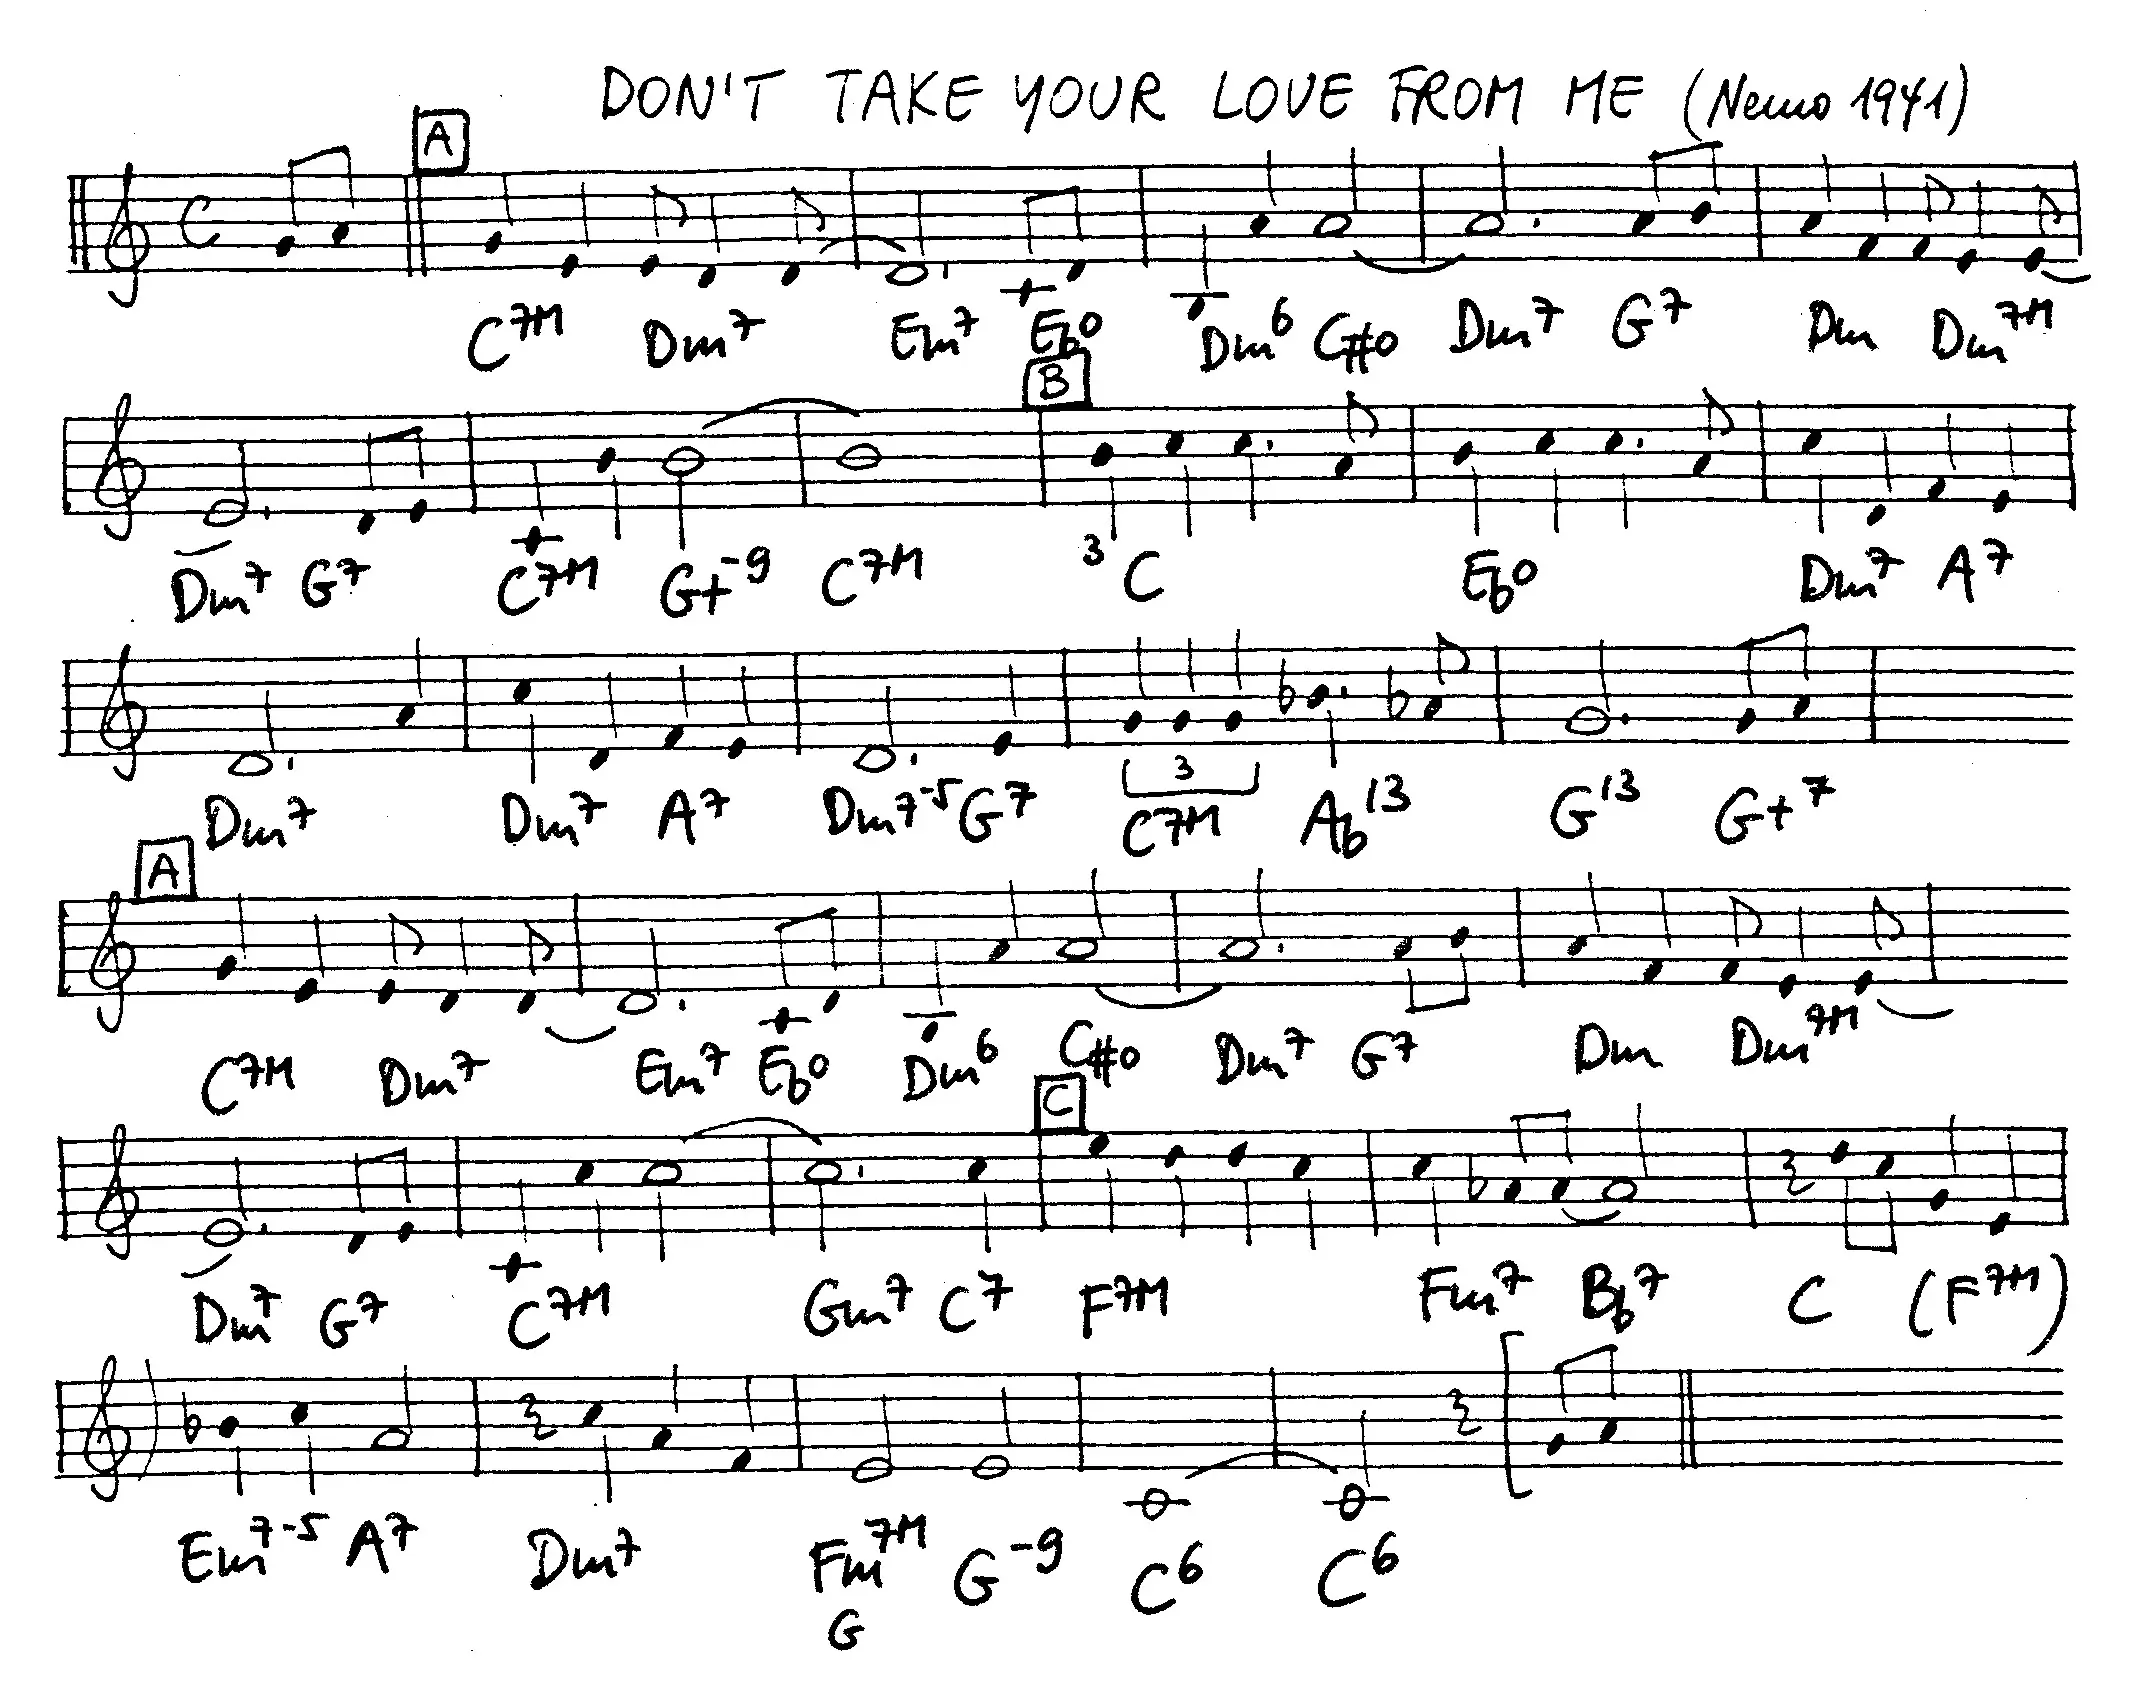 DON'T TAKE YOUR LOVE FROM ME (Nemo 1941)
A
C
C7M Dm7 Em7 Ebo Dm6 C#o Dm7 G7 Dm Dm7M
B
Dm7 G7 C7M G+-9 C7M 3 C Ebo Dm7 A7
3
Dm7 Dm7 A7 Dm7-5 G7 C7M Ab13 G13 G+7
A
C7M Dm7 Em7 Ebo Dm6 C#o Dm7 G7 Dm Dm7M
C
Dm7 G7 C7M Gm7 C7 F7M Fm7 Bb7 C (F7M)
Em7-5 A7 Dm7 Fm7M G-9 C6 C6
G